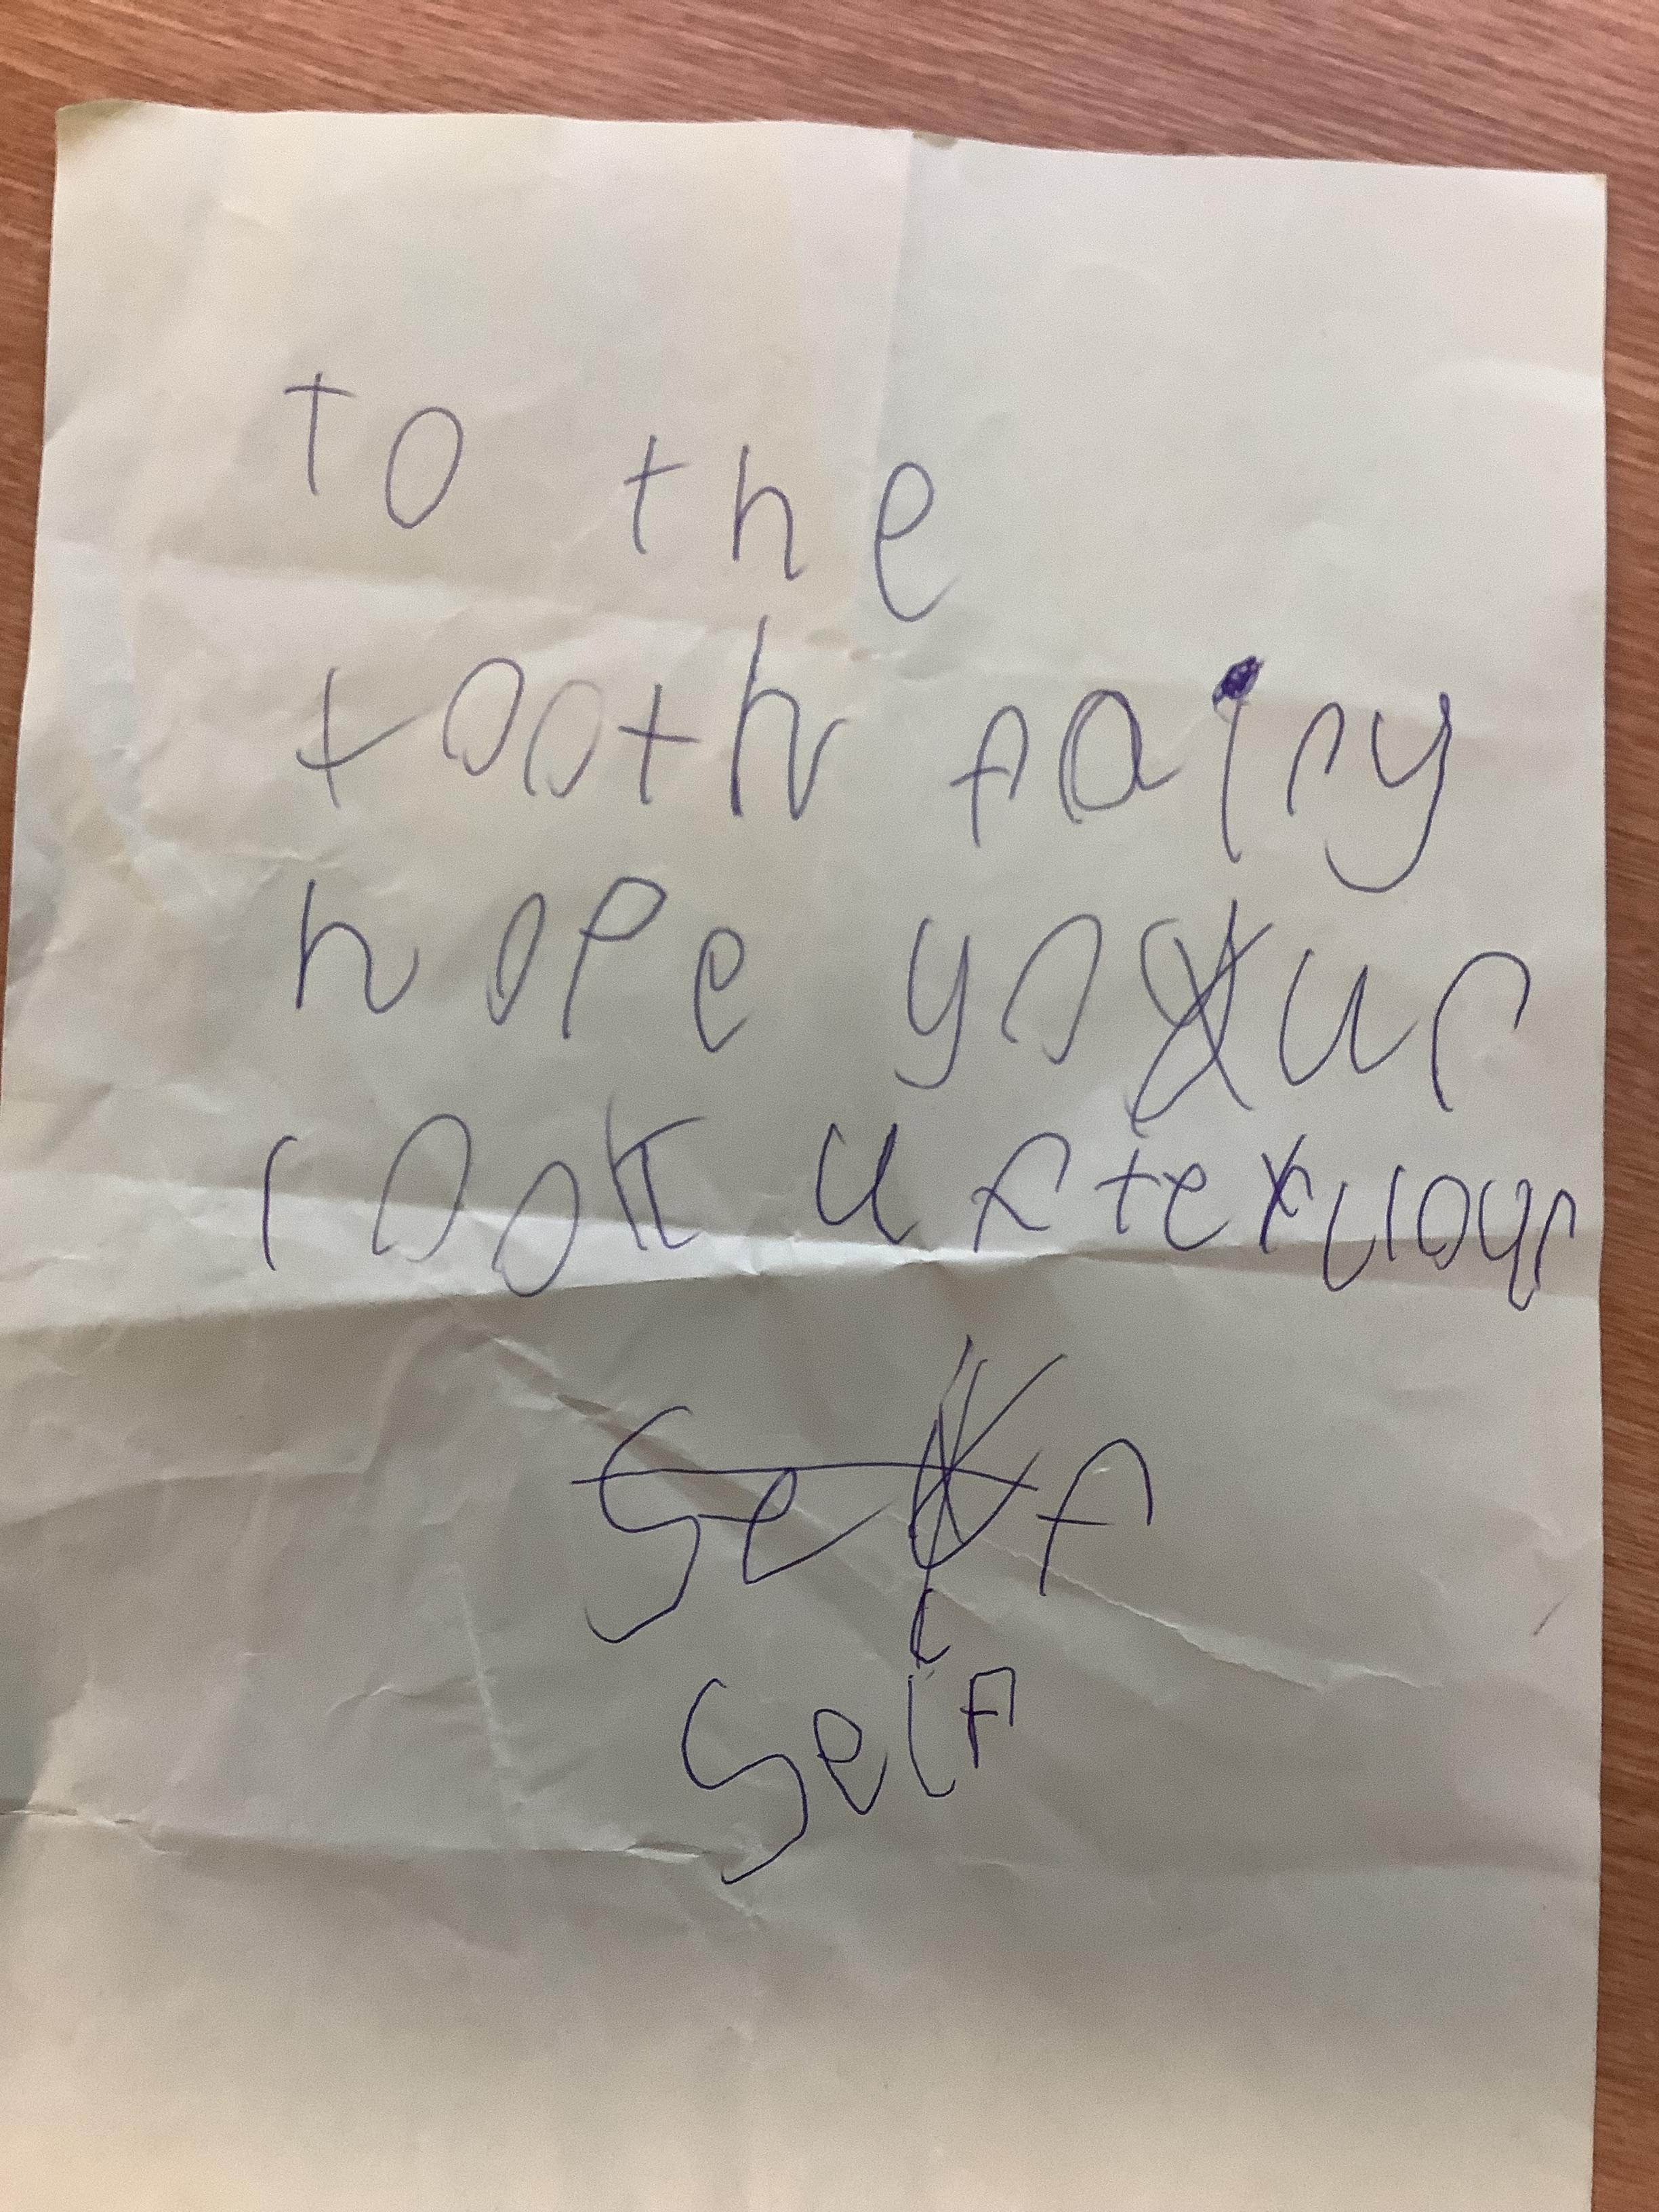 to the
tooth fairy
hope your
look after your
self
self